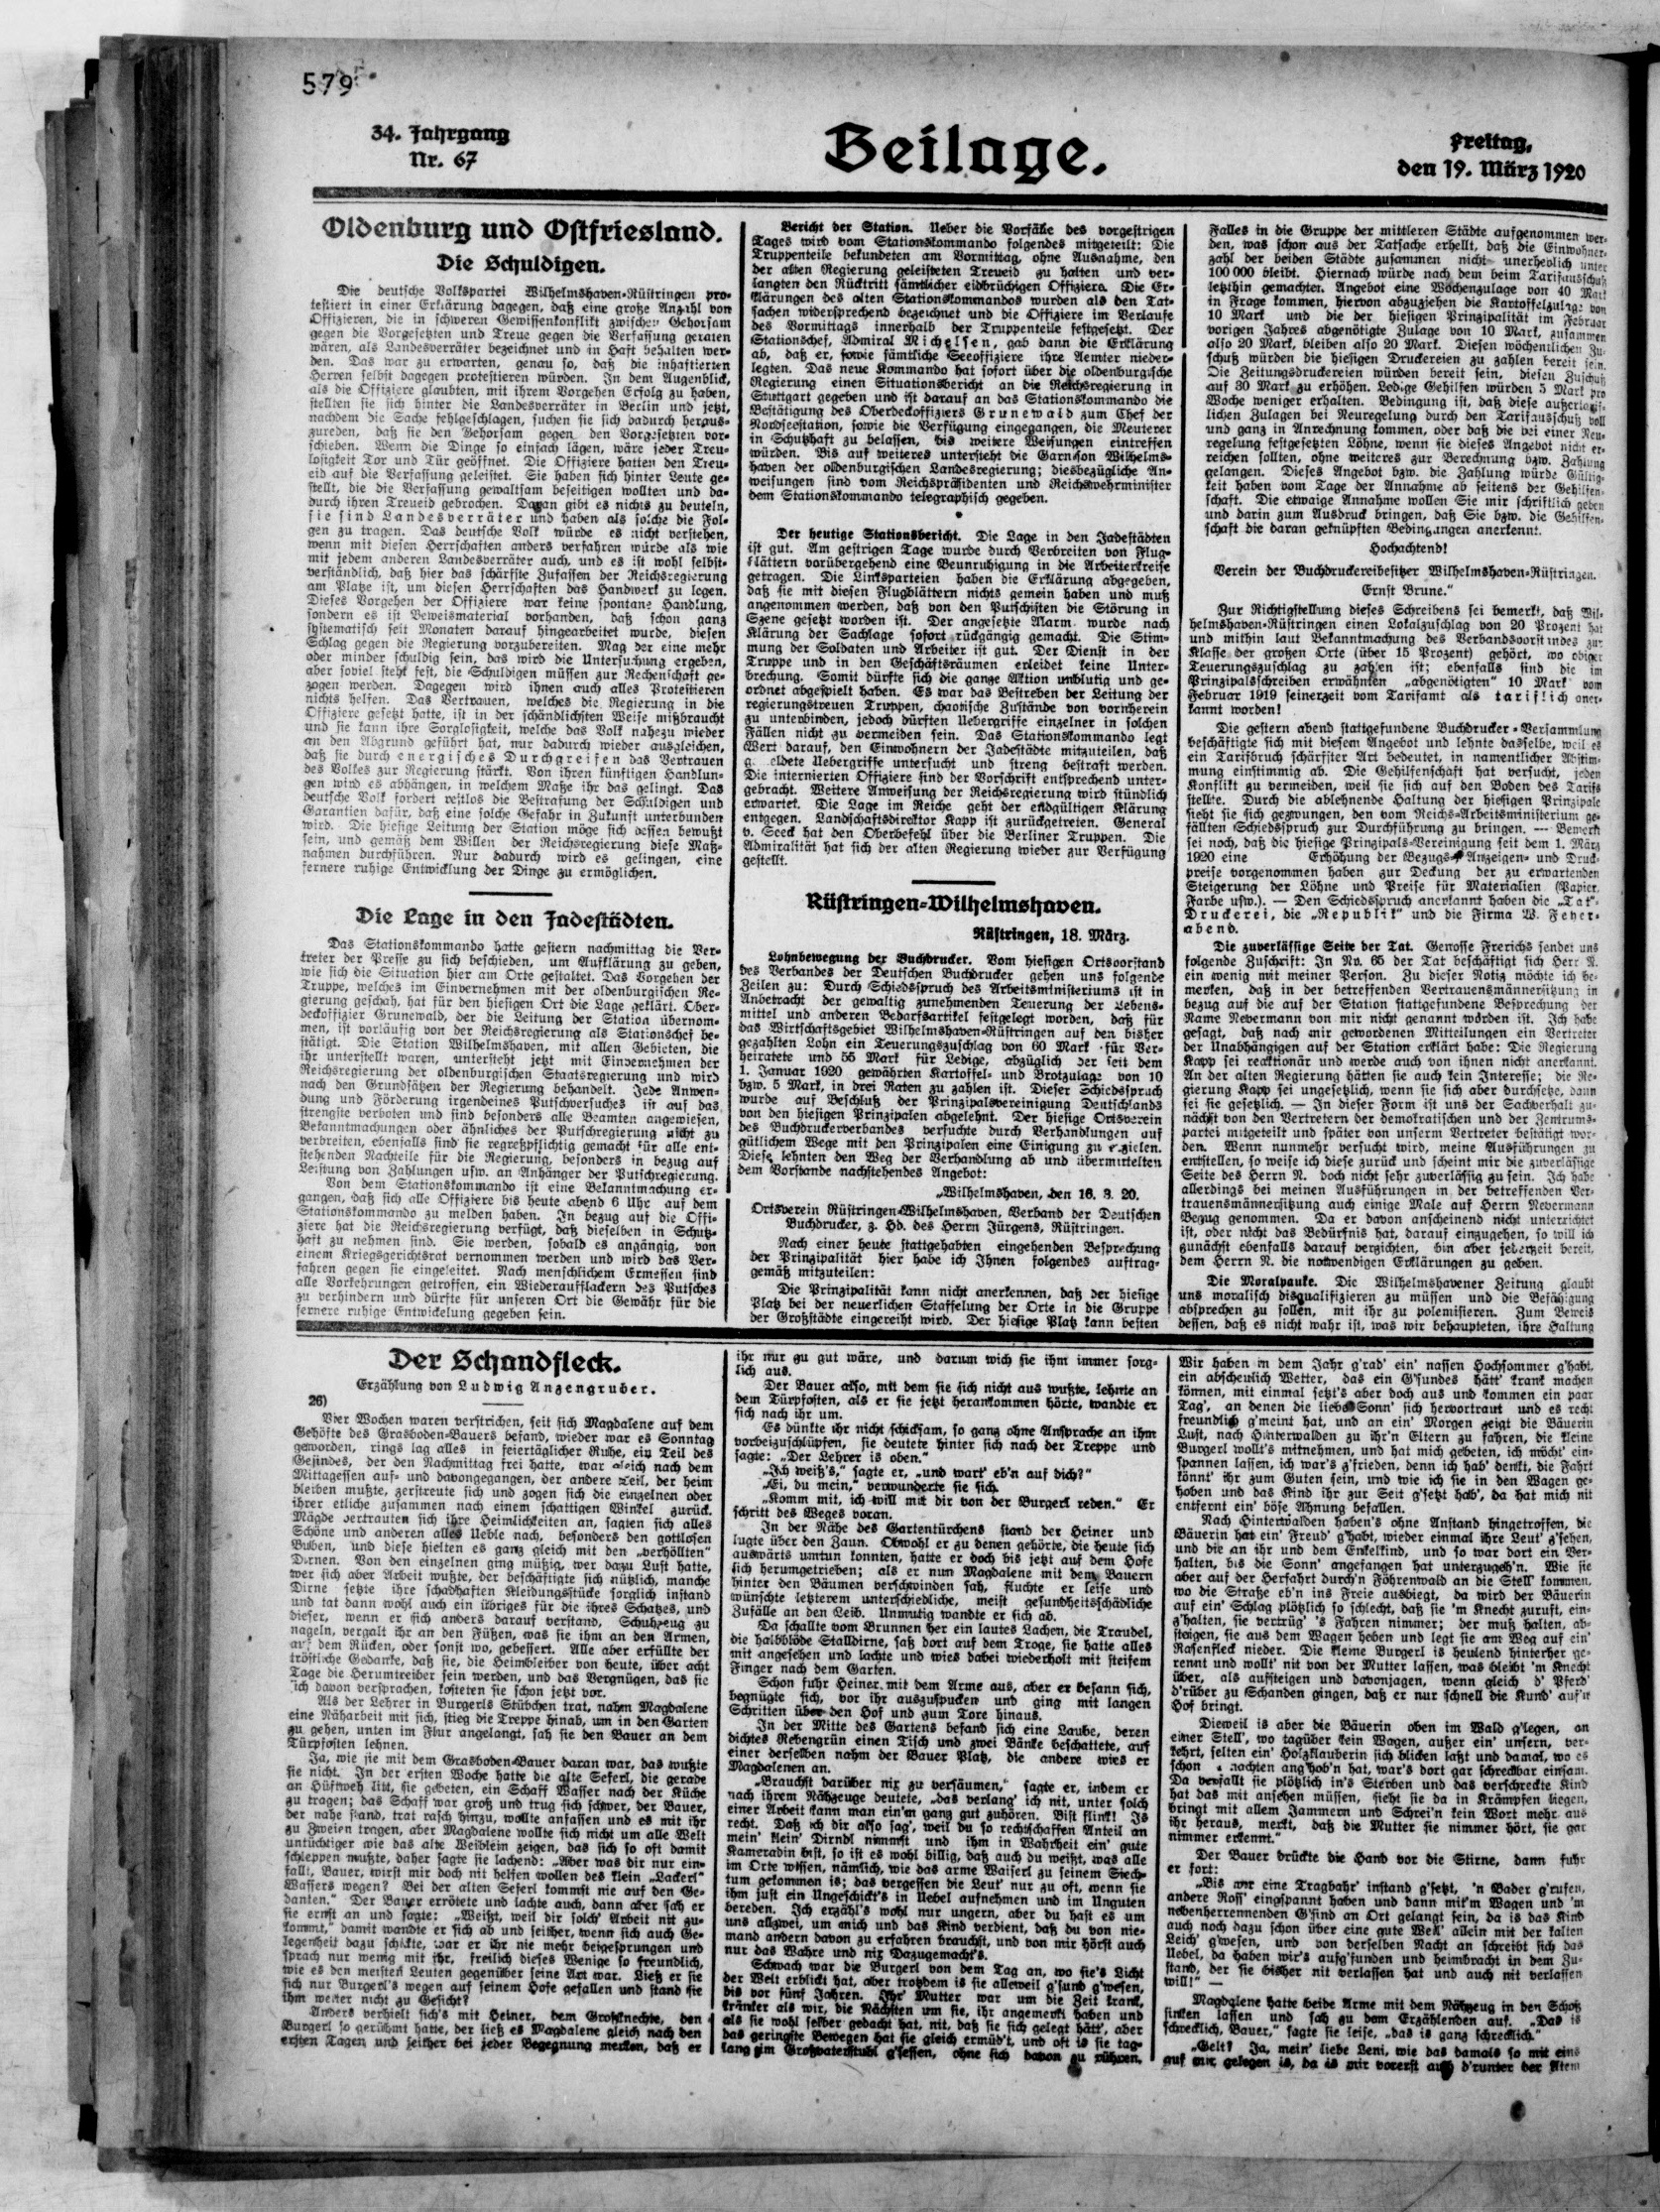 579
34. Jahrgang
Nr. 67
Beilage.
Freitag,
den 19. März 1920
Oldenburg und Ostfriesland.
Die Schuldigen.
Die deutsche Volkspartei Wilhelmshaven-Rüstringen pro-
testiert in einer Erklärung dagegen, daß eine große Anzahl von
Offizieren, die in schweren Gewissenkonflikt zwischen Gehorsam
gegen die Vorgesetzten und Treue gegen die Verfassung geraten
wären, als Landesverräter bezeichnet und in Haft behalten wer-
den. Das war zu erwarten, genau so, daß die inhaftierten
Herren selbst dagegen protestieren würden. In dem Augenblick,
als die Offiziere glaubten, mit ihrem Vorgehen Erfolg zu haben,
stellten sie sich hinter die Landesverräter in Berlin und jetzt,
nachdem die Sache fehlgeschlagen, suchen sie sich dadurch heraus-
zureden, daß sie den Gehorsam gegen den Vorgesetzten vor-
schieben. Wenn die Dinge so einfach lägen, wäre jeder Treu-
losigkeit Tor und Tür geöffnet. Die Offiziere hatten den Treu-
eid auf die Verfassung geleistet. Sie haben sich hinter Leute ge-
stellt, die die Verfassung gewaltsam beseitigen wollten und da-
durch ihren Treueid gebrochen. Daran gibt es nichts zu deuteln,
sie sind Landesverräter und haben als solche die Fol-
gen zu tragen. Das deutsche Volk würde es nicht verstehen,
wenn mit diesen Herrschaften anders verfahren würde als wie
mit jedem anderen Landesverräter auch, und es ist wohl selbst-
verständlich, daß hier das schärfste Zufassen der Reichsregierung
am Platze ist, um diesen Herrschaften das Handwerk zu legen.
Dieses Vorgehen der Offiziere war keine spontane Handlung,
sondern es ist Beweismaterial vorhanden, daß schon ganz
systematisch seit Monaten darauf hingearbeitet wurde, diesen
Schlag gegen die Regierung vorzubereiten. Mag der eine mehr
oder minder schuldig sein, das wird die Untersuchung ergeben,
aber soviel steht fest, die Schuldigen müssen zur Rechenschaft ge-
zogen werden. Dagegen wird ihnen auch alles Protestieren
nichts helfen. Das Vertrauen, welches die Regierung in die
Offiziere gesetzt hatte, ist in der schändlichsten Weise mißbraucht
und sie kann ihre Sorglosigkeit, welche das Volk nahezu wieder
an den Abgrund geführt hat, nur dadurch wieder ausgleichen,
daß sie durch energisches Durchgreifen das Vertrauen
des Volkes zur Regierung stärkt. Von ihren künftigen Handlun-
gen wird es abhängen, in welchem Maße ihr das gelingt. Das
deutsche Volk fordert restlos die Bestrafung der Schuldigen und
Garantien dafür, daß eine solche Gefahr in Zukunft unterbunden
wird. Die hiesige Leitung der Station möge sich dessen bewußt
sein, und gemäß dem Willen der Reichsregierung diese Maß-
nahmen durchführen. Nur dadurch wird es gelingen, eine
fernere ruhige Entwicklung der Dinge zu ermöglichen.
Die Lage in den Jadestädten.
Das Stationskommando hatte gestern nachmittag die Ver-
treter der Presse zu sich beschieden, um Aufklärung zu geben,
wie sich die Situation hier am Orte gestaltet. Das Vorgehen der
Truppe, welches im Einvernehmen mit der oldenburgischen Re-
gierung geschah, hat für den hiesigen Ort die Lage geklärt. Ober-
deckoffizier Grunewald, der die Leitung der Station übernom-
men, ist vorläufig von der Reichsregierung als Stationschef be-
stätigt. Die Station Wilhelmshaven, mit allen Gebieten, die
ihr unterstellt waren, untersteht jetzt mit Einvernehmen der
Reichsregierung der oldenburgischen Staatsregierung und wird
nach den Grundsätzen der Regierung behandelt. Jede Anwen-
dung und Förderung irgendeines Putschversuches ist auf das
strengste verboten und sind besonders alle Beamten angewiesen,
Bekanntmachungen oder ähnliches der Putschregierung nicht zu
verbreiten, ebenfalls sind sie regreßpflichtig gemacht für alle ent-
stehenden Nachteile für die Regierung, besonders in bezug auf
Leistung von Zahlungen usw. an Anhänger der Putschregierung.
Von dem Stationskommando ist eine Bekanntmachung er-
gangen, daß sich alle Offiziere bis heute abend 6 Uhr auf dem
Stationskommando zu melden haben. In bezug auf die Offi-
ziere hat die Reichsregierung verfügt, daß dieselben in Schutz-
haft zu nehmen sind. Sie werden, sobald es angängig, von
einem Kriegsgerichtsrat vernommen werden und wird das Ver-
fahren gegen sie eingeleitet. Nach menschlichem Ermessen sind
alle Vorkehrungen getroffen, ein Wiederaufflackern des Putsches
zu verhindern und dürfte für unseren Ort die Gewähr für die
fernere ruhige Entwickelung gegeben sein.
Bericht der Station. Ueber die Vorfälle des vorgestrigen
Tages wird vom Stationskommando folgendes mitgeteilt: Die
Truppenteile bekundeten am Vormittag, ohne Ausnahme, den
der alten Regierung geleisteten Treueid zu halten und ver-
langten den Rücktritt sämtlicher eidbrüchigen Offiziere. Die Er-
klärungen des alten Stationskommandos wurden als den Tat-
sachen widersprechend bezeichnet und die Offiziere im Verlaufe
des Vormittags innerhalb der Truppenteile festgesetzt. Der
Stationschef, Admiral Michelsen, gab dann die Erklärung
ab, daß er, sowie sämtliche Seeoffiziere ihre Aemter nieder-
legten. Das neue Kommando hat sofort über die oldenburgische
Regierung einen Situationsbericht an die Reichsregierung in
Stuttgart gegeben und ist darauf an das Stationskommando die
Bestätigung des Oberdeckoffiziers Grunewald zum Chef der
Nordseestation, sowie die Verfügung eingegangen, die Meuterer
in Schutzhaft zu belassen, bis weitere Weisungen eintreffen
würden. Bis auf weiteres untersteht die Garnison Wilhelms-
haven der oldenburgischen Landesregierung; diesbezügliche An-
weisungen sind vom Reichspräsidenten und Reichswehrminister
dem Stationskommando telegraphisch gegeben.
*
Der heutige Stationsbericht. Die Lage in den Jadestädten
ist gut. Am gestrigen Tage wurde durch Verbreiten von Flug-
blättern vorübergehend eine Beunruhigung in die Arbeiterkreise
getragen. Die Linksparteien haben die Erklärung abgegeben,
daß sie mit diesen Flugblättern nichts gemein haben und muß
angenommen werden, daß von den Putschisten die Störung in
Szene gesetzt worden ist. Der angesetzte Alarm wurde nach
Klärung der Sachlage sofort rückgängig gemacht. Die Stim-
mung der Soldaten und Arbeiter ist gut. Der Dienst in der
Truppe und in den Geschäftsräumen erleidet keine Unter-
brechung. Somit dürfte sich die ganze Aktion unblutig und ge-
ordnet abgespielt haben. Es war das Bestreben der Leitung der
regierungstreuen Truppen, chaotische Zustände von vornherein
zu unterbinden, jedoch dürften Uebergriffe einzelner in solchen
Fällen nicht zu vermeiden sein. Das Stationskommando legt
Wert darauf, den Einwohnern der Jadestädte mitzuteilen, daß
g eldete Uebergriffe untersucht und streng bestraft werden.
Die internierten Offiziere sind der Vorschrift entsprechend unter-
gebracht. Weitere Anweisung der Reichsregierung wird stündlich
erwartet. Die Lage im Reiche geht der endgültigen Klärung
entgegen. Landschaftsdirektor Kapp ist zurückgetreten. General
v. Seeck hat den Oberbefehl über die Berliner Truppen. Die
Admiralität hat sich der alten Regierung wieder zur Verfügung
gestellt.
Rüstringen-Wilhelmshaven.
Rüstringen, 18. März.
Lohnbewegung der Buchdrucker. Vom hiesigen Ortsvorstand
des Verbandes der Deutschen Buchdrucker gehen uns folgende
Zeilen zu: Durch Schiedsspruch des Arbeitsministeriums ist in
Anbetracht der gewaltig zunehmenden Teuerung der Lebens-
mittel und anderen Bedarfsartikel festgelegt worden, daß für
das Wirtschaftsgebiet Wilhelmshaven-Rüstringen auf den bisher
gezahlten Lohn ein Teuerungszuschlag von 60 Mark für Ver-
heiratete und 55 Mark für Ledige, abzüglich der seit dem
1. Januar 1920 gewährten Kartoffel- und Brotzulage von 10
bzw. 5 Mark, in drei Raten zu zahlen ist. Dieser Schiedsspruch
wurde auf Beschluß der Prinzipalsvereinigung Deutschlands
von den hiesigen Prinzipalen abgelehnt. Der hiesige Ortsverein
des Buchdruckerverbandes versuchte durch Verhandlungen auf
gütlichem Wege mit den Prinzipalen eine Einigung zu erzielen.
Diese lehnten den Weg der Verhandlung ab und übermittelten
dem Vorstande nachstehendes Angebot:
„Wilhelmshaven, den 16. 3. 20.
Ortsverein Rüstringen-Wilhelmshaven, Verband der Deutschen
Buchdrucker, z. Hd. des Herrn Jürgens, Rüstringen.
Nach einer heute stattgehabten eingehenden Besprechung
der Prinzipalität hier habe ich Ihnen folgendes auftrag-
gemäß mitzuteilen:
Die Prinzipalität kann nicht anerkennen, daß der hiesige
Platz bei der neuerlichen Staffelung der Orte in die Gruppe
der Großstädte eingereiht wird. Der hiesige Platz kann besten
Falles in die Gruppe der mittleren Städte aufgenommen wer-
den, was schon aus der Tatsache erhellt, daß die Einwohner-
zahl der beiden Städte zusammen nicht unerheblich unter
100 000 bleibt. Hiernach würde nach dem beim Tarifausschuß
letzthin gemachten Angebot eine Wochenzulage von 40 Mark
in Frage kommen, hiervon abzuziehen die Kartoffelzulage von
10 Mark und die der hiesigen Prinzipalität im Februar
vorigen Jahres abgenötigte Zulage von 10 Mark, zusammen
also 20 Mark, bleiben also 20 Mark. Diesen wöchentlichen Zu-
schuß würden die hiesigen Druckereien zu zahlen bereit sein.
Die Zeitungsdruckereien würden bereit sein, diesen Zuschuß
auf 30 Mark zu erhöhen. Ledige Gehilfen würden 5 Mark pro
Woche weniger erhalten. Bedingung ist, daß diese außertarif-
lichen Zulagen bei Neuregelung durch den Tarifausschuß voll
und ganz in Anrechnung kommen, oder daß die bei einer Neu-
regelung festgesetzten Löhne, wenn sie dieses Angebot nicht er-
reichen sollten, ohne weiteres zur Berechnung bzw. Zahlung
gelangen. Dieses Angebot bzw. die Zahlung würde Gültig-
keit haben vom Tage der Annahme ab seitens der Gehilfen-
schaft. Die etwaige Annahme wollen Sie mir schriftlich geben
und darin zum Ausdruck bringen, daß Sie bzw. die Gehilfen-
schaft die daran geknüpften Bedingungen anerkennt.
Hochachtend!
Verein der Buchdruckereibesitzer Wilhelmshaven-Rüstringen.
Ernst Brune.“
Zur Richtigstellung dieses Schreibens sei bemerkt, daß Wil-
helmshaven-Rüstringen einen Lokalzuschlag von 20 Prozent hat
und mithin laut Bekanntmachung des Verbandsvorstandes zur
Klasse der großen Orte (über 15 Prozent) gehört, wo obiger
Teuerungszuschlag zu zahlen ist; ebenfalls sind die im
Prinzipalschreiben erwähnten „abgenötigten“ 10 Mark vom
Februar 1919 seinerzeit vom Tarifamt als tariflich aner-
kannt worden!
Die gestern abend stattgefundene Buchdrucker-Versammlung
beschäftigte sich mit diesem Angebot und lehnte dasselbe, weil es
ein Tarifbruch schärfster Art bedeutet, in namentlicher Abstim-
mung einstimmig ab. Die Gehilfenschaft hat versucht, jeden
Konflikt zu vermeiden, weil sie sich auf den Boden des Tarifs
stellte. Durch die ablehnende Haltung der hiesigen Prinzipale
sieht sie sich gezwungen, den vom Reichs-Arbeitsministerium ge-
fällten Schiedsspruch zur Durchführung zu bringen. — Bemerkt
sei noch, daß die hiesige Prinzipals-Vereinigung seit dem 1. März
1920 eine Erhöhung der Bezugs-, Anzeigen- und Druck-
preise vorgenommen haben zur Deckung der zu erwartenden
Steigerung der Löhne und Preise für Materialien (Papier,
Farbe usw.). — Den Schiedsspruch anerkannt haben die „Tat“-
Druckerei, die „Republik“ und die Firma W. Feyer-
abend.
Die zuverlässige Seite der Tat. Genosse Frerichs sendet uns
folgende Zuschrift: In No. 65 der Tat beschäftigt sich Herr N.
ein wenig mit meiner Person. Zu dieser Notiz möchte ich be-
merken, daß in der betreffenden Vertrauensmännersitzung in
bezug auf die auf der Station stattgefundene Besprechung der
Name Nevermann von mir nicht genannt worden ist. Ich habe
gesagt, daß nach mir gewordenen Mitteilungen ein Vertreter
der Unabhängigen auf der Station erklärt habe: Die Regierung
Kapp sei reaktionär und werde auch von ihnen nicht anerkannt.
An der alten Regierung hätten sie auch kein Interesse; die Re-
gierung Kapp sei ungesetzlich, wenn sie sich aber durchsetze, dann
sei sie gesetzlich. — In dieser Form ist uns der Sachverhalt zu-
nächst von den Vertretern der demokratischen und der Zentrums-
partei mitgeteilt und später von unserm Vertreter bestätigt wor-
den. Wenn nunmehr versucht wird, meine Ausführungen zu
entstellen, so weise ich diese zurück und scheint mir die zuverlässige
Seite des Herrn N. doch nicht sehr zuverlässig zu sein. Ich habe
allerdings bei meinen Ausführungen in der betreffenden Ver-
trauensmännersitzung auch einige Male auf Herrn Nevermann
Bezug genommen. Da er davon anscheinend nicht unterrichtet
ist, oder nicht das Bedürfnis hat, darauf einzugehen, so will ich
zunächst ebenfalls darauf verzichten, bin aber jederzeit bereit,
dem Herrn N. die notwendigen Erklärungen zu geben.
Die Moralpauke. Die Wilhelmshavener Zeitung glaubt
uns moralisch disqualifizieren zu müssen und die Befähigung
absprechen zu sollen, mit ihr zu polemisieren. Zum Beweis
dessen, daß es nicht wahr ist, was wir behaupteten, ihre Haltung
Der Schandfleck.
Erzählung von Ludwig Anzengruber.
26)
Vier Wochen waren verstrichen, seit sich Magdalene auf dem
Gehöfte des Grasboden-Bauers befand, wieder war es Sonntag
geworden, rings lag alles in feiertäglicher Ruhe, ein Teil des
Gesindes, der den Nachmittag frei hatte, war gleich nach dem
Mittagessen auf- und davongegangen, der andere Teil, der heim
bleiben mußte, zerstreute sich und zogen sich die einzelnen oder
ihrer etliche zusammen nach einem schattigen Winkel zurück.
Mägde vertrauten sich ihre Heimlichkeiten an, sagten sich alles
Schöne und anderen alles Ueble nach, besonders den gottlosen
Buben, und diese hielten es ganz gleich mit den „verhöllten“
Dirnen. Von den einzelnen ging müßig, wer dazu Lust hatte,
wer sich aber Arbeit wußte, der beschäftigte sich nützlich, manche
Dirne setzte ihre schadhaften Kleidungsstücke sorglich instand
und tat dann wohl auch ein übriges für die ihres Schatzes, und
dieser, wenn er sich anders darauf verstand, Schuhzeug zu
nageln, vergalt ihr an den Füßen, was sie ihm an den Armen,
auf dem Rücken, oder sonst wo, gebessert. Alle aber erfüllte der
tröstliche Gedanke, daß sie, die Heimbleiber von heute, über acht
Tage die Herumtreiber sein werden, und das Vergnügen, das sie
sich davon versprachen, kosteten sie schon jetzt vor.
Als der Lehrer in Burgerls Stübchen trat, nahm Magdalene
eine Näharbeit mit sich, stieg die Treppe hinab, um in den Garten
zu gehen, unten im Flur angelangt, sah sie den Bauer an dem
Türpfosten lehnen.
Ja, wie sie mit dem Grasboden-Bauer daran war, das wußte
sie nicht. In der ersten Woche hatte die alte Seferl, die gerade
an Hüftweh litt, sie gebeten, ein Schaff Wasser nach der Küche
zu tragen; das Schaff war groß und trug sich schwer, der Bauer,
der nahe stand, trat rasch hinzu, wollte anfassen und es mit ihr
zu Zweien tragen, aber Magdalene wollte sich nicht um alle Welt
untüchtiger wie das alte Weiblein zeigen, das sich so oft damit
schleppen mußte, daher sagte sie lachend: „Aber was dir nur ein-
fallt, Bauer, wirst mir doch nit helfen wollen des klein „Lackerl“
Wassers wegen? Bei der alten Seferl kommst nie auf den Ge-
danken.“ Der Bauer errötete und lachte auch, dann aber sah er
sie ernst an und sagte: „Weißt, weil dir solch' Arbeit nit zu-
kommt,“ damit wandte er sich ab und seither, wenn sich auch Ge-
legenheit dazu schickte, war er ihr nie mehr beigesprungen und
sprach nur wenig mit ihr, freilich dieses Wenige so freundlich,
wie es den meisten Leuten gegenüber seine Art war. Ließ er sie
sich nur Burgerl's wegen auf seinem Hofe gefallen und stand sie
ihm weiter nicht zu Gesicht?
Anders verhielt sich's mit Heiner, dem Großknechte, den
Burgerl so gerühmt hatte, der ließ es Magdalene gleich nach den
ersten Tagen und seither bei jeder Begegnung merken, daß er
ihr nur zu gut wäre, und darum wich sie ihm immer sorg-
lich aus.
Der Bauer also, mit dem sie sich nicht aus wußte, lehnte an
dem Türpfosten, als er sie jetzt herankommen hörte, wandte er
sich nach ihr um.
Es dünkte ihr nicht schicksam, so ganz ohne Ansprache an ihm
vorbeizuschlüpfen, sie deutete hinter sich nach der Treppe und
sagte: „Der Lehrer is oben.“
„Ich weiß's,“ sagte er, „und wart' eb'n auf dich?“
„Ei, du mein,“ verwunderte sie sich.
„Komm mit, ich will mit dir von der Burgerl reden.“ Er
schritt des Weges voran.
In der Nähe des Gartentürchens stand der Heiner und
lugte über den Zaun. Obwohl er zu denen gehörte, die heute sich
auswärts umtun konnten, hatte er doch bis jetzt auf dem Hofe
sich herumgetrieben; als er nun Magdalene mit dem Bauern
hinter den Bäumen verschwinden sah, fluchte er leise und
wünschte letzterem unterschiedliche, meist gesundheitsschädliche
Zufälle an den Leib. Unmutig wandte er sich ab.
Da schallte vom Brunnen her ein lautes Lachen, die Traudel,
die halbblöde Stalldirne, saß dort auf dem Troge, sie hatte alles
mit angesehen und lachte und wies dabei wiederholt mit steifem
Finger nach dem Garten.
Schon fuhr Heiner mit dem Arme aus, aber er besann sich,
begnügte sich, vor ihr auszuspucken und ging mit langen
Schritten über den Hof und zum Tore hinaus.
In der Mitte des Gartens befand sich eine Laube, deren
dichtes Rebengrün einen Tisch und zwei Bänke beschattete, auf
einer derselben nahm der Bauer Platz, die andere wies er
Magdalenen an.
„Brauchst darüber nix zu versäumen,“ sagte er, indem er
nach ihrem Nähzeuge deutete, „das verlang' ich nit, unter solch
einer Arbeit kann man ein'm ganz gut zuhören. Bist flink! Is
recht. Daß ich dir also sag', weil du so rechtschaffen Anteil an
mein' klein' Dirndl nimmst und ihm in Wahrheit ein' gute
Kameradin bist, so ist es wohl billig, daß auch du weißt, was alle
im Orte wissen, nämlich, wie das arme Waiserl zu seinem Siech-
tum gekommen is; das vergessen die Leut' nur zu oft, wenn sie
ihm just ein Ungeschickt's in Uebel aufnehmen und im Unguten
bereden. Ich erzähl's wohl nur ungern, aber du hast es um
uns allzwei, um mich und das Kind verdient, daß du von nie-
mand andern davon zu erfahren brauchst, und von mir hörst auch
nur das Wahre und nix Dazugemacht's.
Schwach war die Burgerl von dem Tag an, wo sie's Licht
der Welt erblickt hat, aber trotzdem is sie alleweil g'sund g'wesen,
bis vor fünf Jahren. Ihr' Mutter war um die Zeit krank,
kränker als wir, die Nächsten um sie, ihr angemerkt haben und
als sie wohl selber gedacht hat, nit, daß sie sich gelegt hätt', aber
das geringste Bewegen hat sie gleich ermüd't, und oft is sie tag-
lang im Großvaterstuhl g'sessen, ohne sich davon zu rühren.
Wir haben in dem Jahr g'rad' ein' nassen Hochsommer g'habt,
ein abscheulich Wetter, das ein G'sundes hätt' krank machen
können, mit einmal setzt's aber doch aus und kommen ein paar
Tag', an denen die liebe Sonn' sich hervortraut und es recht
freundlich g'meint hat, und an ein' Morgen zeigt die Bäuerin
Lust, nach Hinterwalden zu ihr'n Eltern zu fahren, die kleine
Burgerl wollt's mitnehmen, und hat mich gebeten, ich möcht' ein-
spannen lassen, ich war's z'frieden, denn ich hab' denkt, die Fahrt
könnt' ihr zum Guten sein, und wie ich sie in den Wagen ge-
hoben und das Kind ihr zur Seit g'setzt hab', da hat mich nit
entfernt ein' böse Ahnung befallen.
Nach Hinterwalden haben's ohne Anstand hingetroffen, die
Bäuerin hat ein' Freud' g'habt, wieder einmal ihre Leut' z'sehen,
und die an ihr und dem Enkelkind, und so war dort ein Ver-
halten, bis die Sonn' angefangen hat unterzugeh'n. Wie sie
aber auf der Herfahrt durch'n Föhrenwald an die Stell' kommen,
wo die Straße eb'n ins Freie ausbiegt, da wird der Bäuerin
auf ein' Schlag plötzlich so schlecht, daß sie 'm Knecht zuruft, ein-
z'halten, sie vertrüg' 's Fahren nimmer; der muß halten, ab-
steigen, sie aus dem Wagen heben und legt sie am Weg auf ein'
Rasenfleck nieder. Die kleine Burgerl is heulend hinterher ge-
rennt und wollt' nit von der Mutter lassen, was bleibt 'm Knecht
über, als aufsteigen und davonjagen, wenn gleich d' Pferd'
d'rüber zu Schanden gingen, daß er nur schnell die Kund' auf'n
Hof bringt.
Dieweil is aber die Bäuerin oben im Wald g'legen, an
einer Stell', wo tagüber kein Wagen, außer ein' unsern, ver-
kehrt, selten ein' Holzklauberin sich blicken laßt und damal, wo es
schon nachten ang'hob'n hat, war's dort gar schreckbar einsam.
Da verfallt sie plötzlich in's Sterben und das verschreckte Kind
hat das mit ansehen müssen, sieht sie da in Krämpfen liegen,
bringt mit allem Jammern und Schrei'n kein Wort mehr aus
ihr heraus, merkt, daß die Mutter sie nimmer hört, sie gar
nimmer erkennt.“
Der Bauer drückte die Hand vor die Stirne, dann fuhr
er fort:
„Bis wir eine Tragbahr' instand g'setzt, 'n Bader g'rufen,
andere Ross' eingspannt haben und dann mit'm Wagen und 'm
nebenherrennenden G'sind an Ort gelangt sein, da is das Kind
auch noch dazu schon über eine gute Weil' allein mit der kalten
Leich' g'wesen, und von derselben Nacht an schreibt sich das
Uebel, da haben wir's aufg'funden und heimbracht in dem Zu-
stand, der sie bisher nit verlassen hat und auch nit verlassen
will!“ —
Magdalene hatte beide Arme mit dem Nähzeug in den Schoß
sinken lassen und sah zu dem Erzählenden auf. „Das is
schrecklich, Bauer,“ sagte sie leise, „das is ganz schrecklich.“
„Gelt? Ja, mein' liebe Leni, wie das damals so mit eins
auf mir gelegen is, da is mir vorerst auch d'runter der Atem